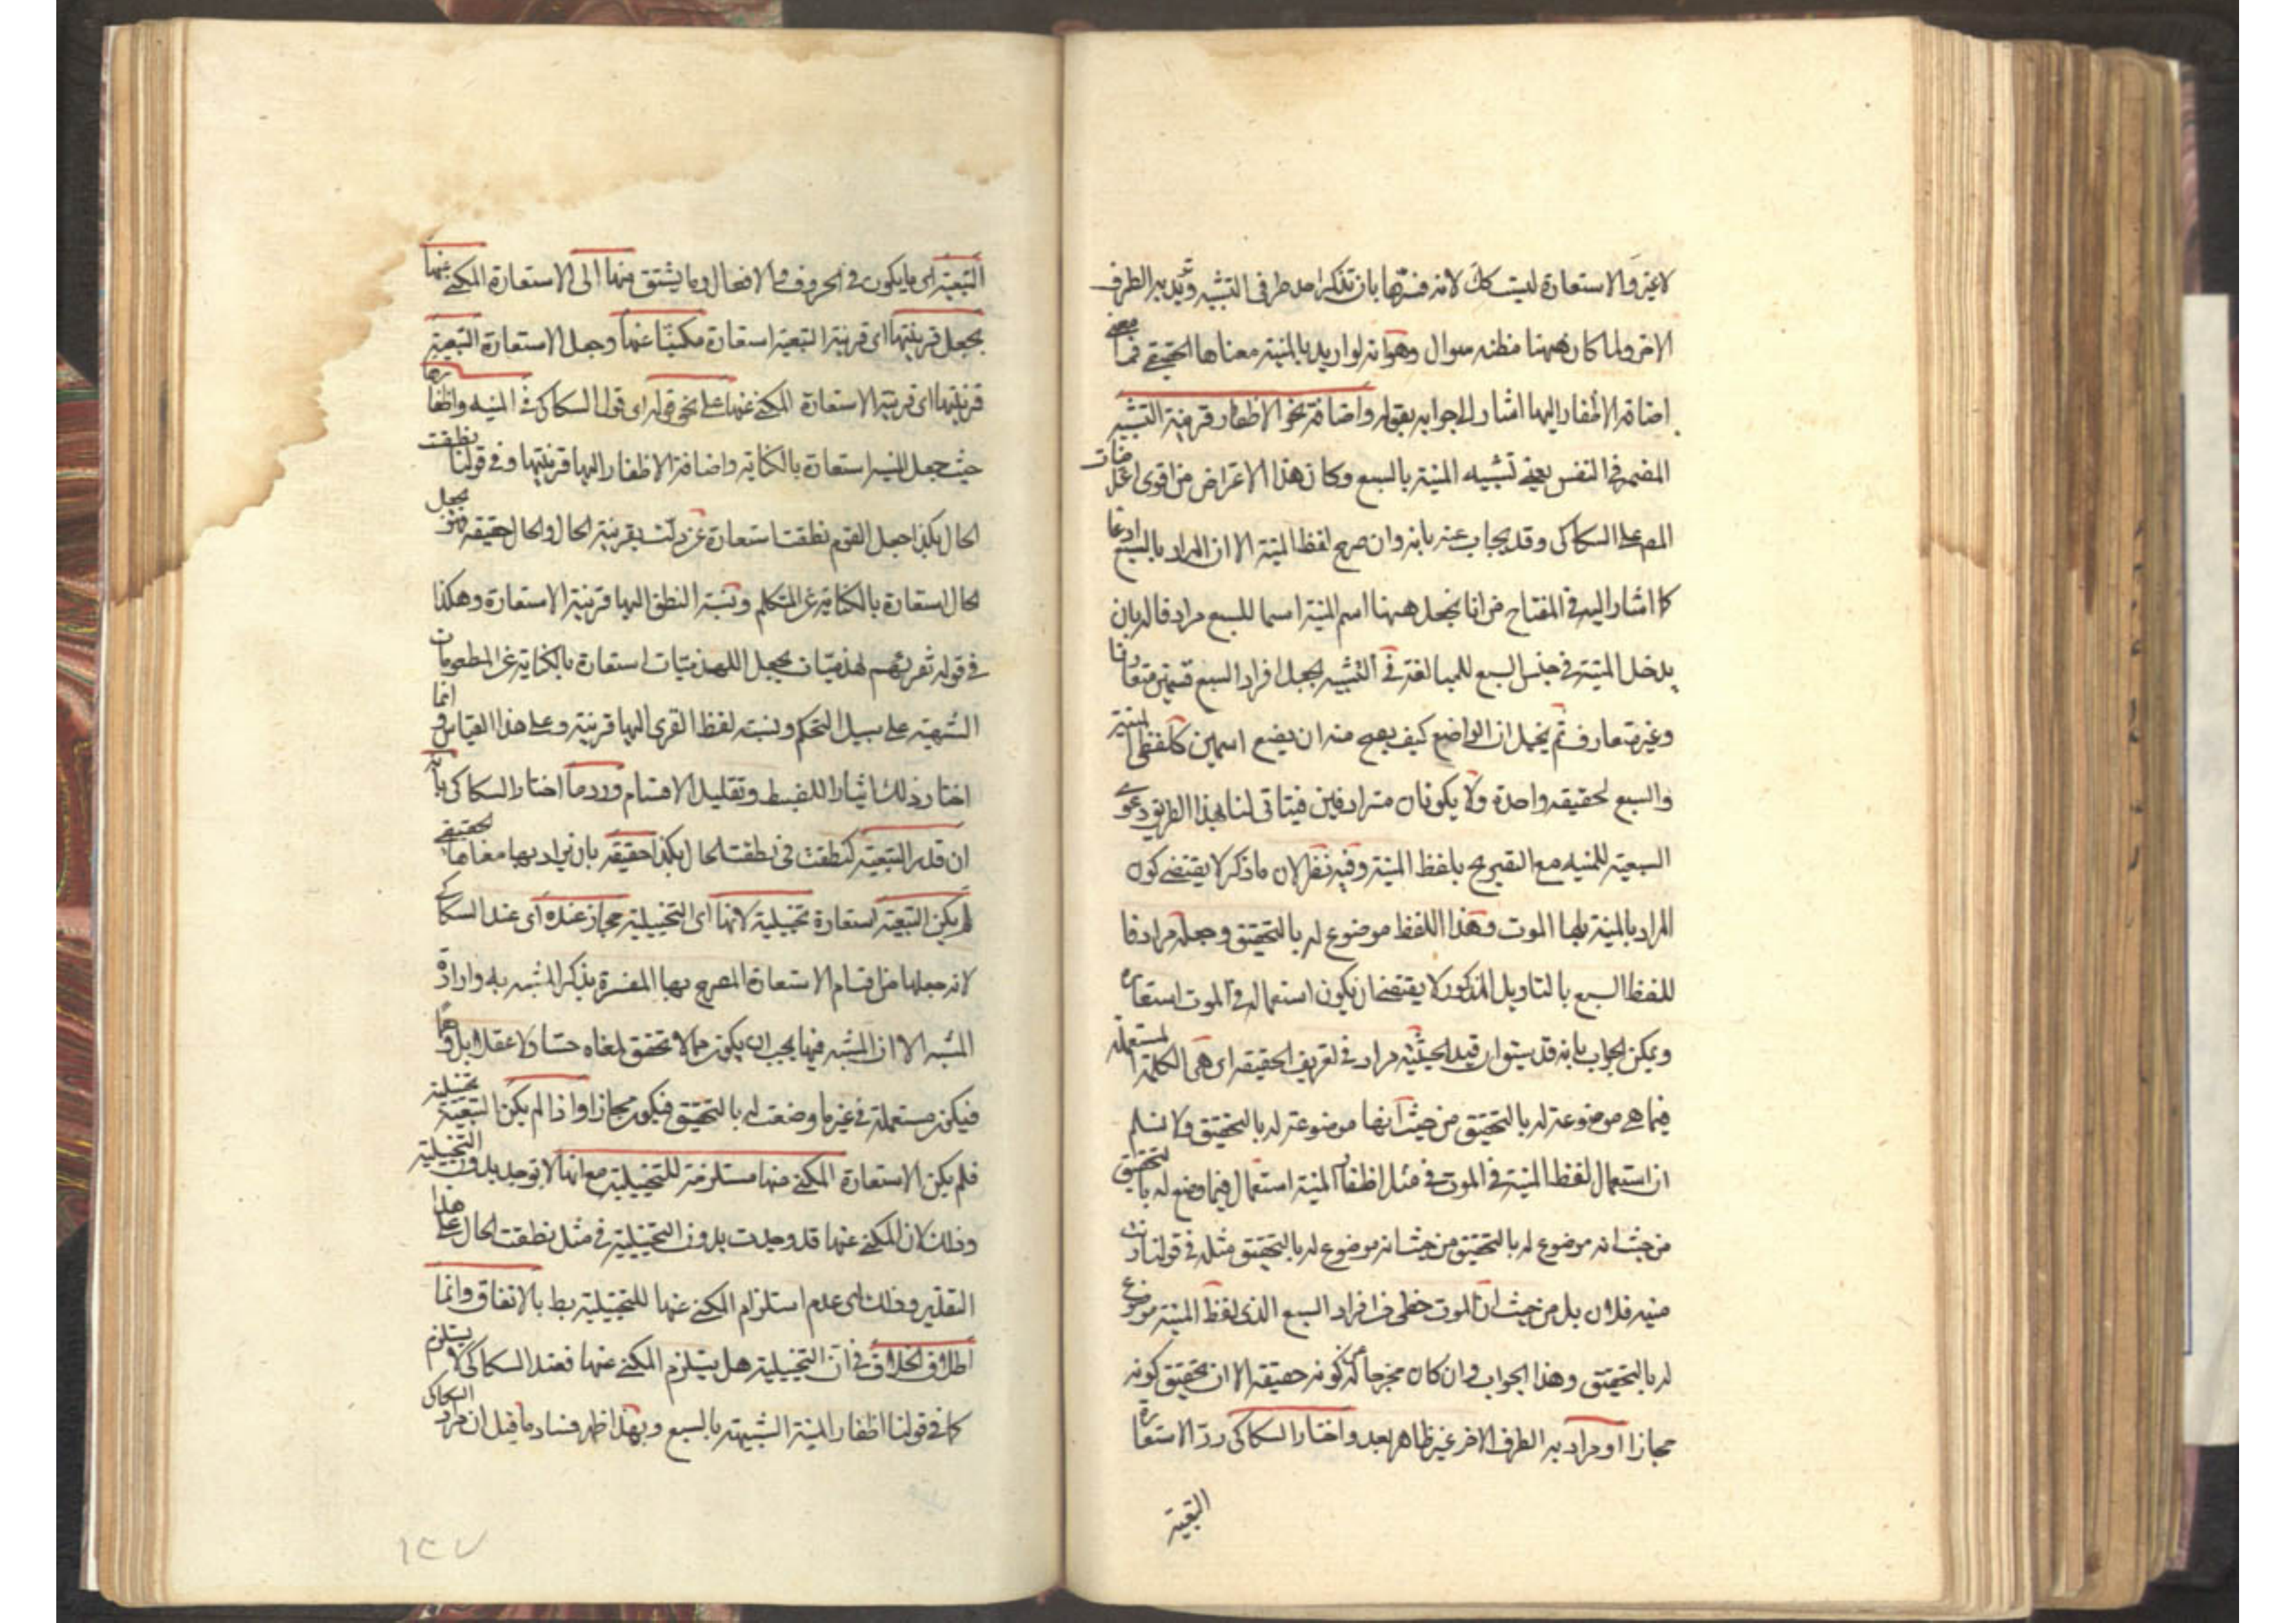 لا غير والاستعارة ليست كك لانه فسرها بان تذكر احد طرفي التشبيه وتريد به الطرف
الاخر ولما كان ههنا مظنة سوال وهو انه لو اريد بالمنية معناها الحقيقي فما معنى
اضافة الاظفار اليها اشار الى جوابه بقوله واضافة نحو الاظفار قرينة التشبيه
المضمر في النفس يعني تشبيه المنية بالسبع وكان هذا الاعتراض من اقوى اعتراضات
المص على السكاكى وقد يجاب عنه بانه وان صرح لفظ المنية الا ان المراد بالسبع ادعا
كما اشار اليه في المفتاح من انا نجعل ههنا اسم المنية اسما للسبع مرادفا له بان
يدخل المنية في جنس السبع للمبالغة في التشبيه بجعل افراد السبع قسمين متعارفا
وغير متعارف ثم يخيل ان الواضع كيف يصح منه ان يضع اسمين كلفظى المنية
والسبع لحقيقة واحدة ولا يكونان مترادفين فيتاتى لنا بهذا الطريق دعوى
السبعية للمنيه مع التصريح بلفظ المنية وفيه نظر لان ما ذكر لا يقتضى كون
المراد بالمنية بها الموت وهذا اللفظ موضوع له بالتحقيق وجعله مرادفا
للفظ السبع بالتاويل المذكور لا يقتضى ان يكون استعماله في الموت استعاره
ويمكن الجواب بانه قد سبق ان قيد الحيثية مراد في تعريف الحقيقة اى هى الكلمة المستعملة
فيما هى موضوعة له بالتحقيق من حيث انها موضوعة له بالتحقيق ولا نسلم
ان استعمال لفظ المنية في الموت في مثل اظفار المنية استعمال فيما وضع له بالتحقيق
من حيث انه موضوع له بالتحقيق من حيث انه موضوع له بالتحقيق مثله في قولنا دنت
منيه فلان بل من حيث ان الموت من افراد السبع الذى لفظ المنية موضوع
له بالتحقيق وهذا الجواب وان كان مخرجا له عن كونه حقيقة الا ان تحقيق كونه
مجازا او مرادا به الطرف الاخر غير ظاهر بعد واختار السكاكى رد الاستعارة
التبعية
التبعية اى ما يكون في الحروف والافعال وما يشتق منها الى الاستعارة المكنى عنها
بجعل قرينتها اى قرينة التبعية استعارة مكنيا عنها وجعل الاستعارة التبعية
قرينتها اى قرينة الاستعارة المكنى عنها على نحو قوله اى قول السكاكى في المنيه واظفارها
حيث جعل المنية استعارة بالكناية واضافة الاظفار اليها قرينتها وفي قولنا نطقت
الحال بكذا جعل القوم نطقت استعارة عن دلت بقرينة الحال والحال حقيقة وهو يجعل
الحال استعارة بالكناية عن المتكلم ونسبة النطق اليها قرينة الاستعارة وهكذا
في قوله نقريهم لهذميات يجعل اللهذميات استعارة بالكناية عن المطعومات
الشهية على سبيل التهكم ونسبة لفظ القرى اليها قرينة وعلى هذا القياس وانما
اختار ذلك ايثارا للضبط وتقليل الاقسام ورد ما اختار السكاكى بانه
ان قدر التبعية كنطقت في نطقت الحال بكذا حقيقة بان يراد بها معناها الحقيقى
لم يكن التبعية استعارة تخييلية لانها اى التخييلية مجاز عنده اى عند السكاكى
لانه جعلها من اقسام الاستعارة المصرح بها المفسرة بذكر المشبه به وارادة
المشبه الا ان المشبه فيها يجب ان يكون مما لا تحقق لمعناه حسا ولا عقلا بل وهما
فيكون مستعملة في غير ما وضعت له بالتحقيق فيكون مجازا واذا لم يكن التبعية تخييلية
فلم يكن الاستعارة المكنى عنها مستلزمة للتخييلية مع انها لا توجد بدون التخييلية
وذلك لان المكنى عنها قد وجدت بدون التخييلية في مثل نطقت الحال على هذا
التقدير وذلك اى عدم استلزام المكنى عنها للتخييلية بط بالاتفاق وانما
اطلاق الخلاف في ان التخييلية هل يستلزم المكنى عنها فعند السكاكى لا يستلزم
كما في قولنا اظفار المنية الشبيهة بالسبع وبهذا ظهر فساد ما قيل ان مراد السكاكى
١٣٧